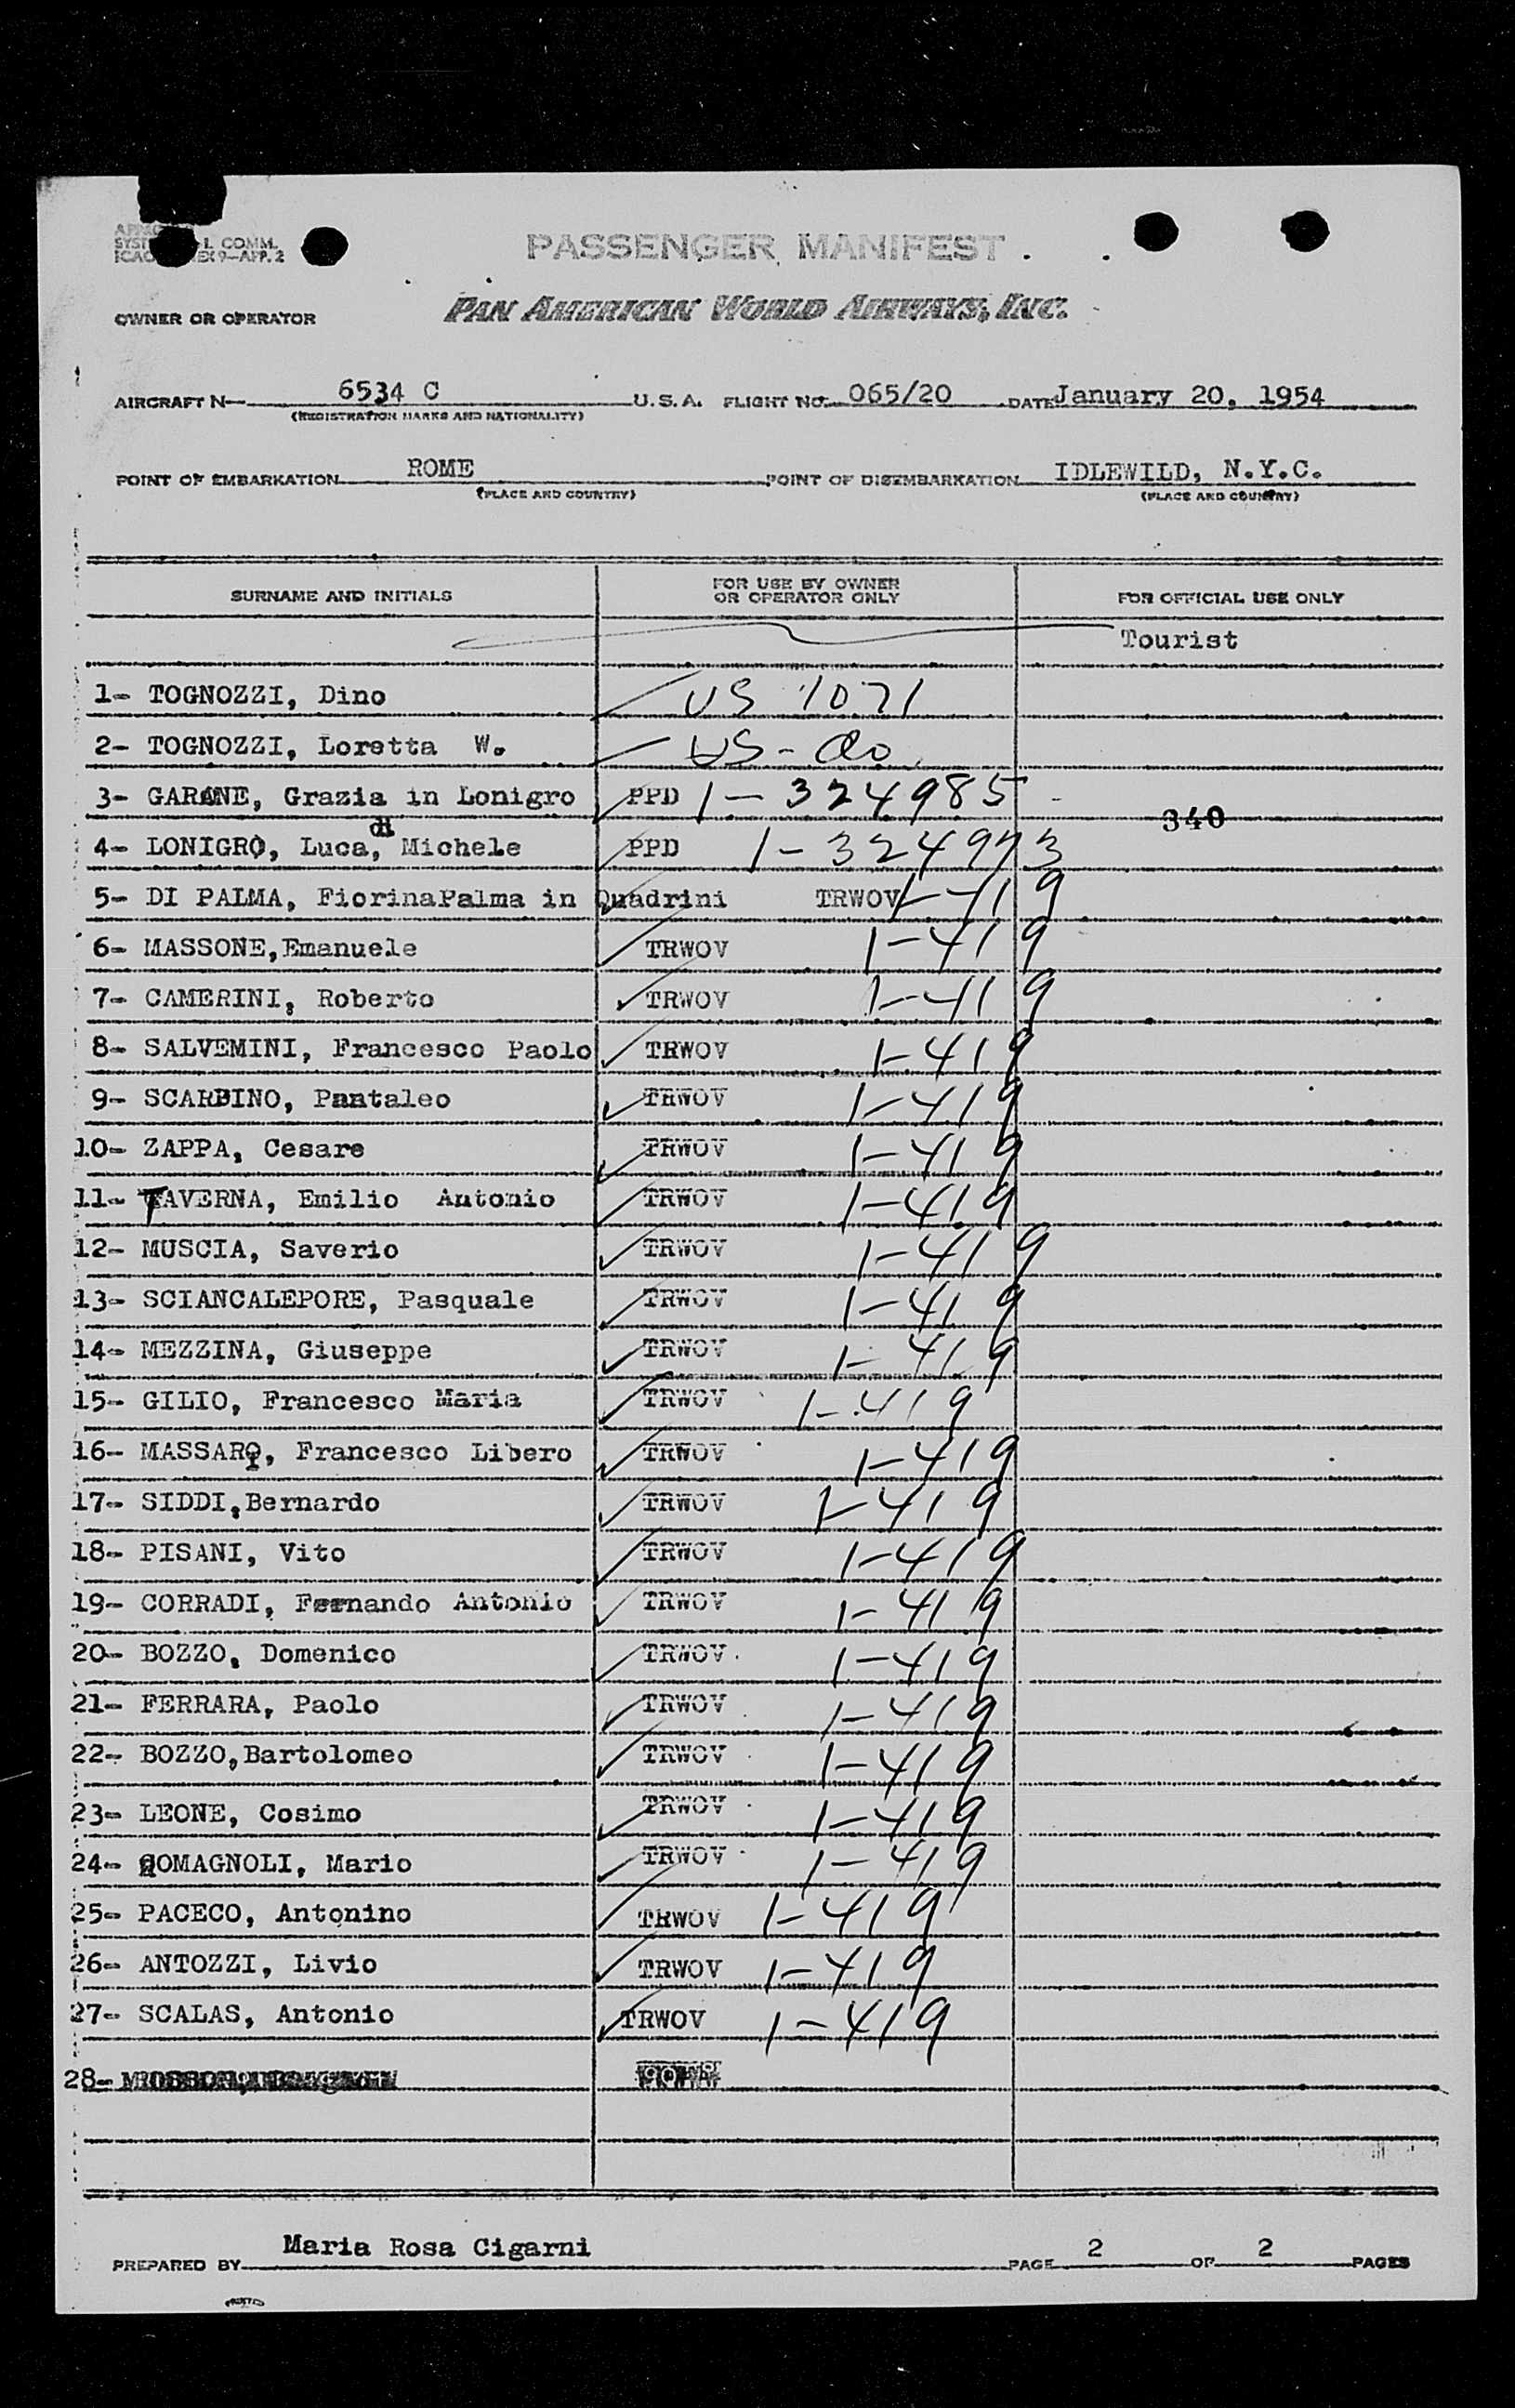 PASSENGER MANIFEST
SYST L COMM.
ICAO EX 9-APP. 2
OWNER OR OPERATOR PAN AMERICAN WORLD AIRWAYS, INC.
AIRCRAFT N— 6534 C U.S.A. FLIGHT NO. 065/20 DATE January 20, 1954
(REGISTRATION MARKS AND NATIONALITY)
POINT OF EMBARKATION ROME POINT OF DISEMBARKATION IDLEWILD, N.Y.C.
(PLACE AND COUNTRY) (PLACE AND COUNTRY)
SURNAME AND INITIALS FOR USE BY OWNER OR OPERATOR ONLY FOR OFFICIAL USE ONLY
Tourist
1- TOGNOZZI, Dino US 1071
2- TOGNOZZI, Loretta W. US - do
3- GARONE, Grazia in Lonigro PPD 1-324985
340
4- LONIGRO, Luca, di Michele PPD 1-324973
5- DI PALMA, FiorinaPalma in Quadrini TRWOV 1-419
6- MASSONE,Emanuele TRWOV 1-419
7- CAMERINI, Roberto TRWOV 1-419
8- SALVEMINI, Francesco Paolo TRWOV 1-419
9- SCARDINO, Pantaleo TRWOV 1-419
10- ZAPPA, Cesare TRWOV 1-419
11- TAVERNA, Emilio Antonio TRWOV 1-419
12- MUSCIA, Saverio TRWOV 1-419
13- SCIANCALEPORE, Pasquale TRWOV 1-419
14- MEZZINA, Giuseppe TRWOV 1-419
15- GILIO, Francesco Maria TRWOV 1-419
16- MASSARI, Francesco Libero TRWOV 1-419
17- SIDDI,Bernardo TRWOV 1-419
18- PISANI, Vito TRWOV 1-419
19- CORRADI, Fernando Antonio TRWOV 1-419
20- BOZZO, Domenico TRWOV 1-419
21- FERRARA, Paolo TRWOV 1-419
22- BOZZO,Bartolomeo TRWOV 1-419
23- LEONE, Cosimo TRWOV 1-419
24- ROMAGNOLI, Mario TRWOV 1-419
25- PACECO, Antonino TRWOV 1-419
26- ANTOZZI, Livio TRWOV 1-419
27- SCALAS, Antonio TRWOV 1-419
28-
PREPARED BY Maria Rosa Cigarni PAGE 2 OF 2 PAGES